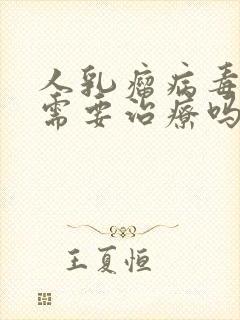 人乳瘤病毒
需要治疗吗
王夏恒